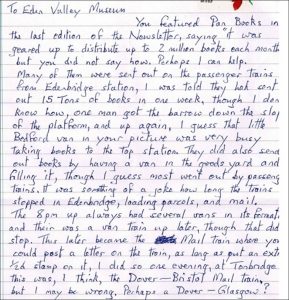 To Eden Valley Museum
You featured Pan Books in
the last edition of the Newsletter, saying "it was
geared up to distribute up to 2 million books each month
but you did not say how. Perhaps I can help.
Many of them were sent out on the passenger trains
from Edenbridge station, I was told they had sent
out 15 Tons of books in one week, though I don
know how, one man got the barrow down the slop
of the platform, and up again, I guess that little
Bedford van in your picture was very busy
taking books to the Top station. They did also send
out books by having a van in the goods yard and
filling it, though I guess most went out by passeng
trains. It was something of a joke how long the trains
stopped in Edenbridge, loading parcels, and mail.
The 8pm up always had several vans in its format.
and their was a van train up later, though that did
stop. This later became the Mail train where you
could post a letter on the train, as long as put an extr
½d stamp on it, I did so one evening, at Tonbridge
this was, I think, the Dover – Bristol Mail train,
but I may be wrong. Perhaps a Dover – Glasgow?